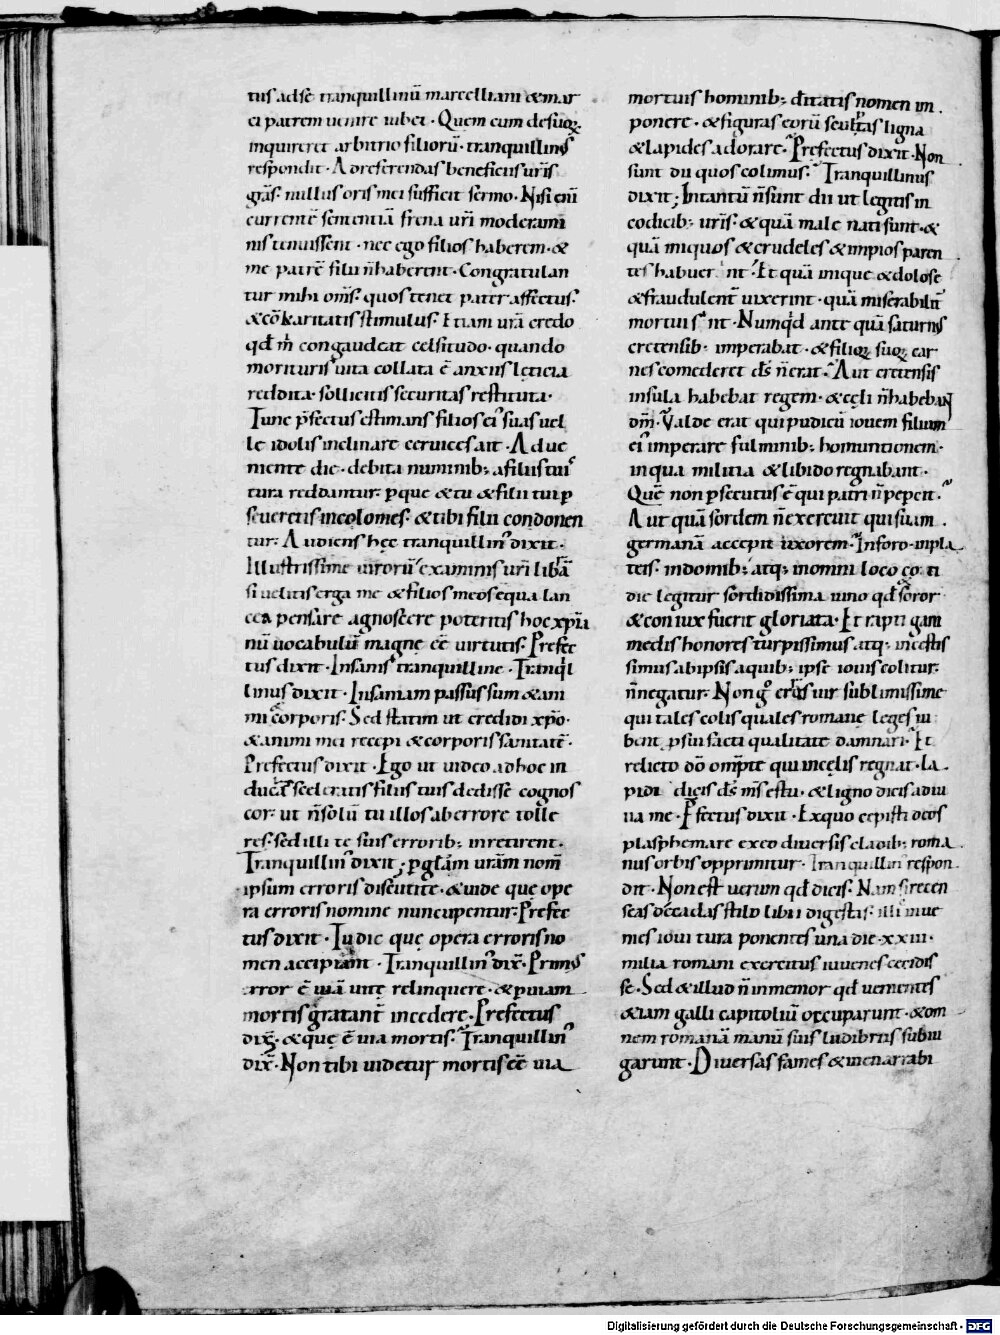 tus ad sē tranquillinū marcelliani & mar
ci patrem uenire iubet · Quem cum de suoꝝ
inquireret arbitrio filiorū · tranquillinus
respondit · Ad referendas beneficiis urīs
grās · nullus oris mei sufficit sermo · Nisi enī
currentē sententiā frena urī moderami
nis tenuissent · nec ego filios haberem · &
me patrē filii n̄ haberent · Congratulan
tur mihi om̄s · quos tenet pater affectus ·
& cō karitatis stimulus · Etiam urā credo
qd m̄ congaudeat celsitudo · quando
morituris uita collata ē anxiis lęticia
reddita · sollicitis securitas restituta ·
Tunc p̄fectus estimans filios ei' suas uel
le idolis inclinare ceruices ait · Adue
niente die · debita numinib; a filiis tuis
tura reddantur · ꝑ que & tu & filii tui ꝑ
seueretis incolomes · & tibi filii condonen
tur · Audiens hęc tranquillin' dixit ·
Illustrissime uirorū examinis urī librā
si uelitis erga me & filios meos equa lan
cea pensare agnoscere poteritis hoc xp̄ia
nū uocabulū magnę eē uirtutis · Prefec
tus dixit · Insanis tranquilline · Tranqi
llinus dixit · Insaniam passus sum & ani
mi & corporis · Sed statim ut credidi xp̄o ·
& animi mei recepi & corporis sanitatē ·
Prefectus dixit · Ego ut uideo ad hoc in
ducias sceleratis filiis tuis dedisse cognos
cor · ut n̄ solū tu illos ab errore tolle
res · sed illi te suis errorib; inretirent ·
Tranquillin' dixit ; ꝑ glām urām nom̄
ipsum erroris discutite · & uide que ope
ra erroris nomine nuncupentur · Prefec
tus dixit · Tu dic que opera erroris no
men accipiant · Tranquillin' dix̄ · Primus
error ē uiā uitę relinquere · & ꝑ uiam
mortis gratant̄ incedere · Prefectus
dix̄ · & quę ē uia mortis · Tranquillin'
dix̄ · Non tibi uidetur mortis eē uia
mortuis hominib; ditatis nomen im
ponere · & figuras eorū sculptas ligna
& lapides adorare · Prefectus dixit · Non
sunt dii quos colimus · Tranquillinus
dixit ; Intantū n̄ sunt dii ut legitis in
codicib; urīs · & quā male nati sunt · &
quā iniquos & crudeles & impios paren
tes habuer nt · Et quā inique & dolose
& fraudulent̄ uixerint · quā miserabilit̄
mortui s nt · Numqd ante quā saturnus
cretensib; imperabat · & filioꝝ suoꝝ car
nes comederet ds̄ n̄ erat · Aut cretensis
insula habebat regem · & cęli n̄ habeban
dm̄ · Valde erat qui pudicū iouem filium
ei' imperare fulminib; homuntionem ·
in qua militia & libido regnabant ·
Quē non ꝑsecutus ē qui patri n̄ pepercit ·
Aut quā sordem n̄ exercuit qui suam
germanā accepit uxorem · In foro · in pla
teis · in domib; atq; in omni loco co ti
die legitur sordidissima iuno qd & soror
& coniux fuerit gloriata · Et rapti gani
medis honores turpissimus atq; incestis
simus ab ipsis a quib; ipse iouis colitur ·
n̄ negatur · Non g° erras uir sublimissime
qui tales colis quales romane leges iu
bent ꝑ sui facti qualitate damnari · Et
relicto dō om̄pte qui in cęlis regnat · la
pidi dicis ds̄ ms̄ es tu · & ligno dicis adiu
ua me · Pfectus dixit · Ex quo cepisti deos
plasphemare exeo diuersis cladib; roma
nus orbis opprimitur · Tranquillin' respon
dit · Non est uerum qd dicis · Nam si recen
seas decadas stilo libii digestas · illi inue
nies ioui tura ponentes una die · xxiii ·
milia romani exercitus iuuenes cecidis
se · Sed & illud n̄ inmemor qd uenientes
etiam galli capitoliū occuparunt · & om
nem romanā manū suis ludibriis subiu
garunt · Diuersas fames & inenarrabi
Digitalisierung gefördert durch die Deutsche Forschungsgemeinschaft - DFG